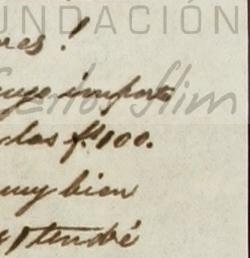 FUNDACIÓN
res!
cuyo importe
Carlos Slim
las f. 100.
muy bien
tendré